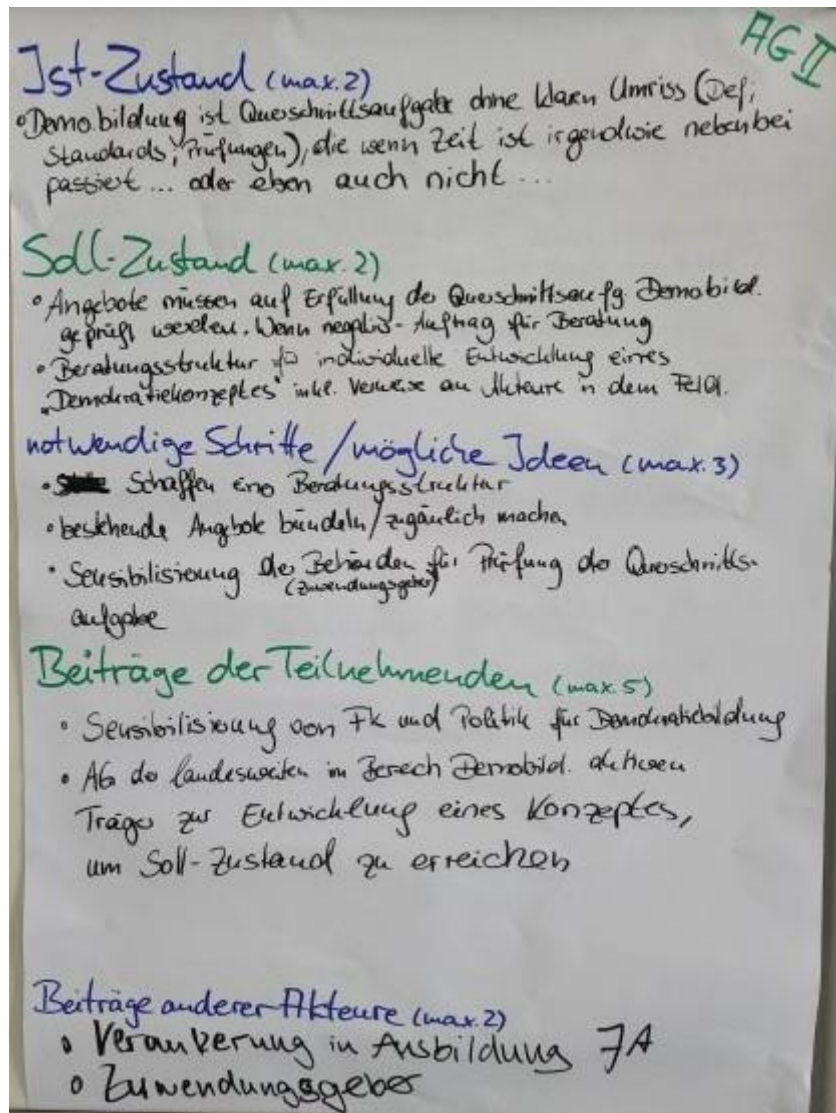 AG II
Ist-Zustand (max. 2)
• Demo.bildung ist Querschnittsaufgabe ohne klaren Umriss (Def,
Standards, Prüfungen), die wenn Zeit ist irgendwie nebenbei
passiert... oder eben auch nicht...
Soll-Zustand (max. 2)
• Angebote müssen auf Erfüllung der Querschnittsaufg Demobild.
geprüft werden. Wenn negativ - Auftrag für Beratung
• Beratungsstruktur für individuelle Entwicklung eines
"Demokratiekonzeptes" inkl. Verweise an Akteure in dem Feld.
notwendige Schritte / mögliche Ideen (max. 3)
• Schaffen einer Beratungsstruktur
• bestehende Angebote bündeln/zugänglich machen
• Sensibilisierung der Behörden für Prüfung der Querschnitts-
(Zuwendungsgeber)
aufgabe
Beiträge der Teilnehmenden (max. 5)
• Sensibilisierung von Fk und Politik für Demokratiebildung
• AG der landesweiten im Bereich Demobild. aktiven
Träger zur Entwicklung eines Konzeptes,
um Soll-Zustand zu erreichen
Beiträge anderer Akteure (max. 2)
• Verankerung in Ausbildung JA
• Zuwendungsgeber